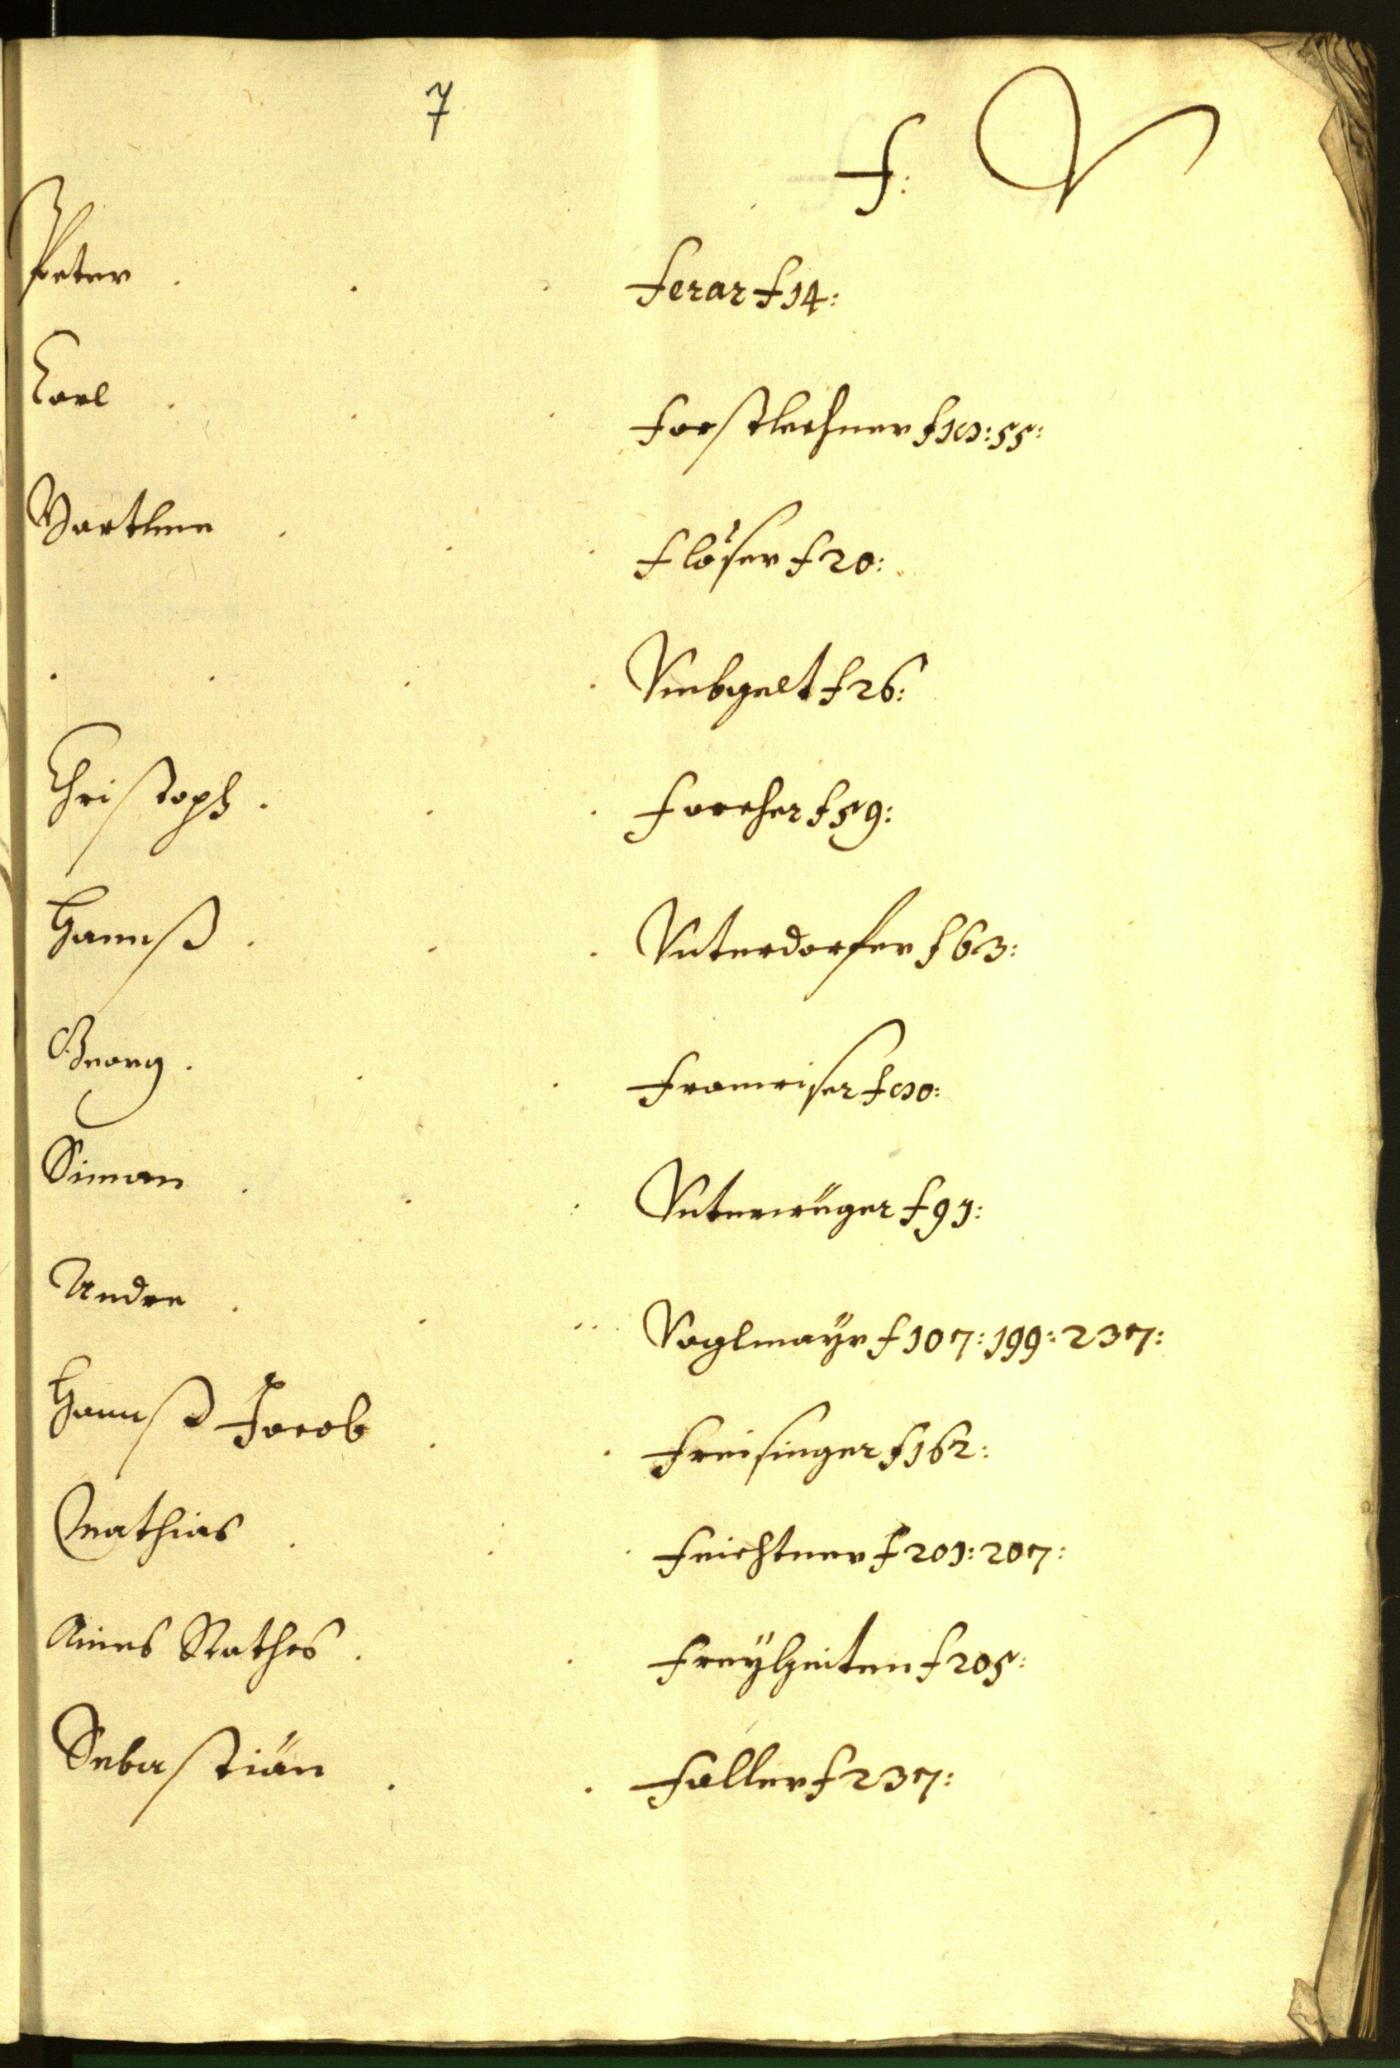 7
f: V
Peter . . . Ferar f 14:
Carl . . . Forstlechner f 18: 55:
Bartlme . . . Flöser f 20:
. . . . Umbgelt f 26:
Christoph . . . Forcher f 59:
Hannß . . . Unterdorfer f 63:
Georg . . . f 80:
Simon . . . f 91:
Andre . . . Voglmayr f 107: 199: 237:
Hannß Jacob . . Freisinger f 162:
Mathias . . . Feichtner f 201: 207:
Aines Rathes . . Freÿheiten f 205:
Sebastian . . Faller f 237: